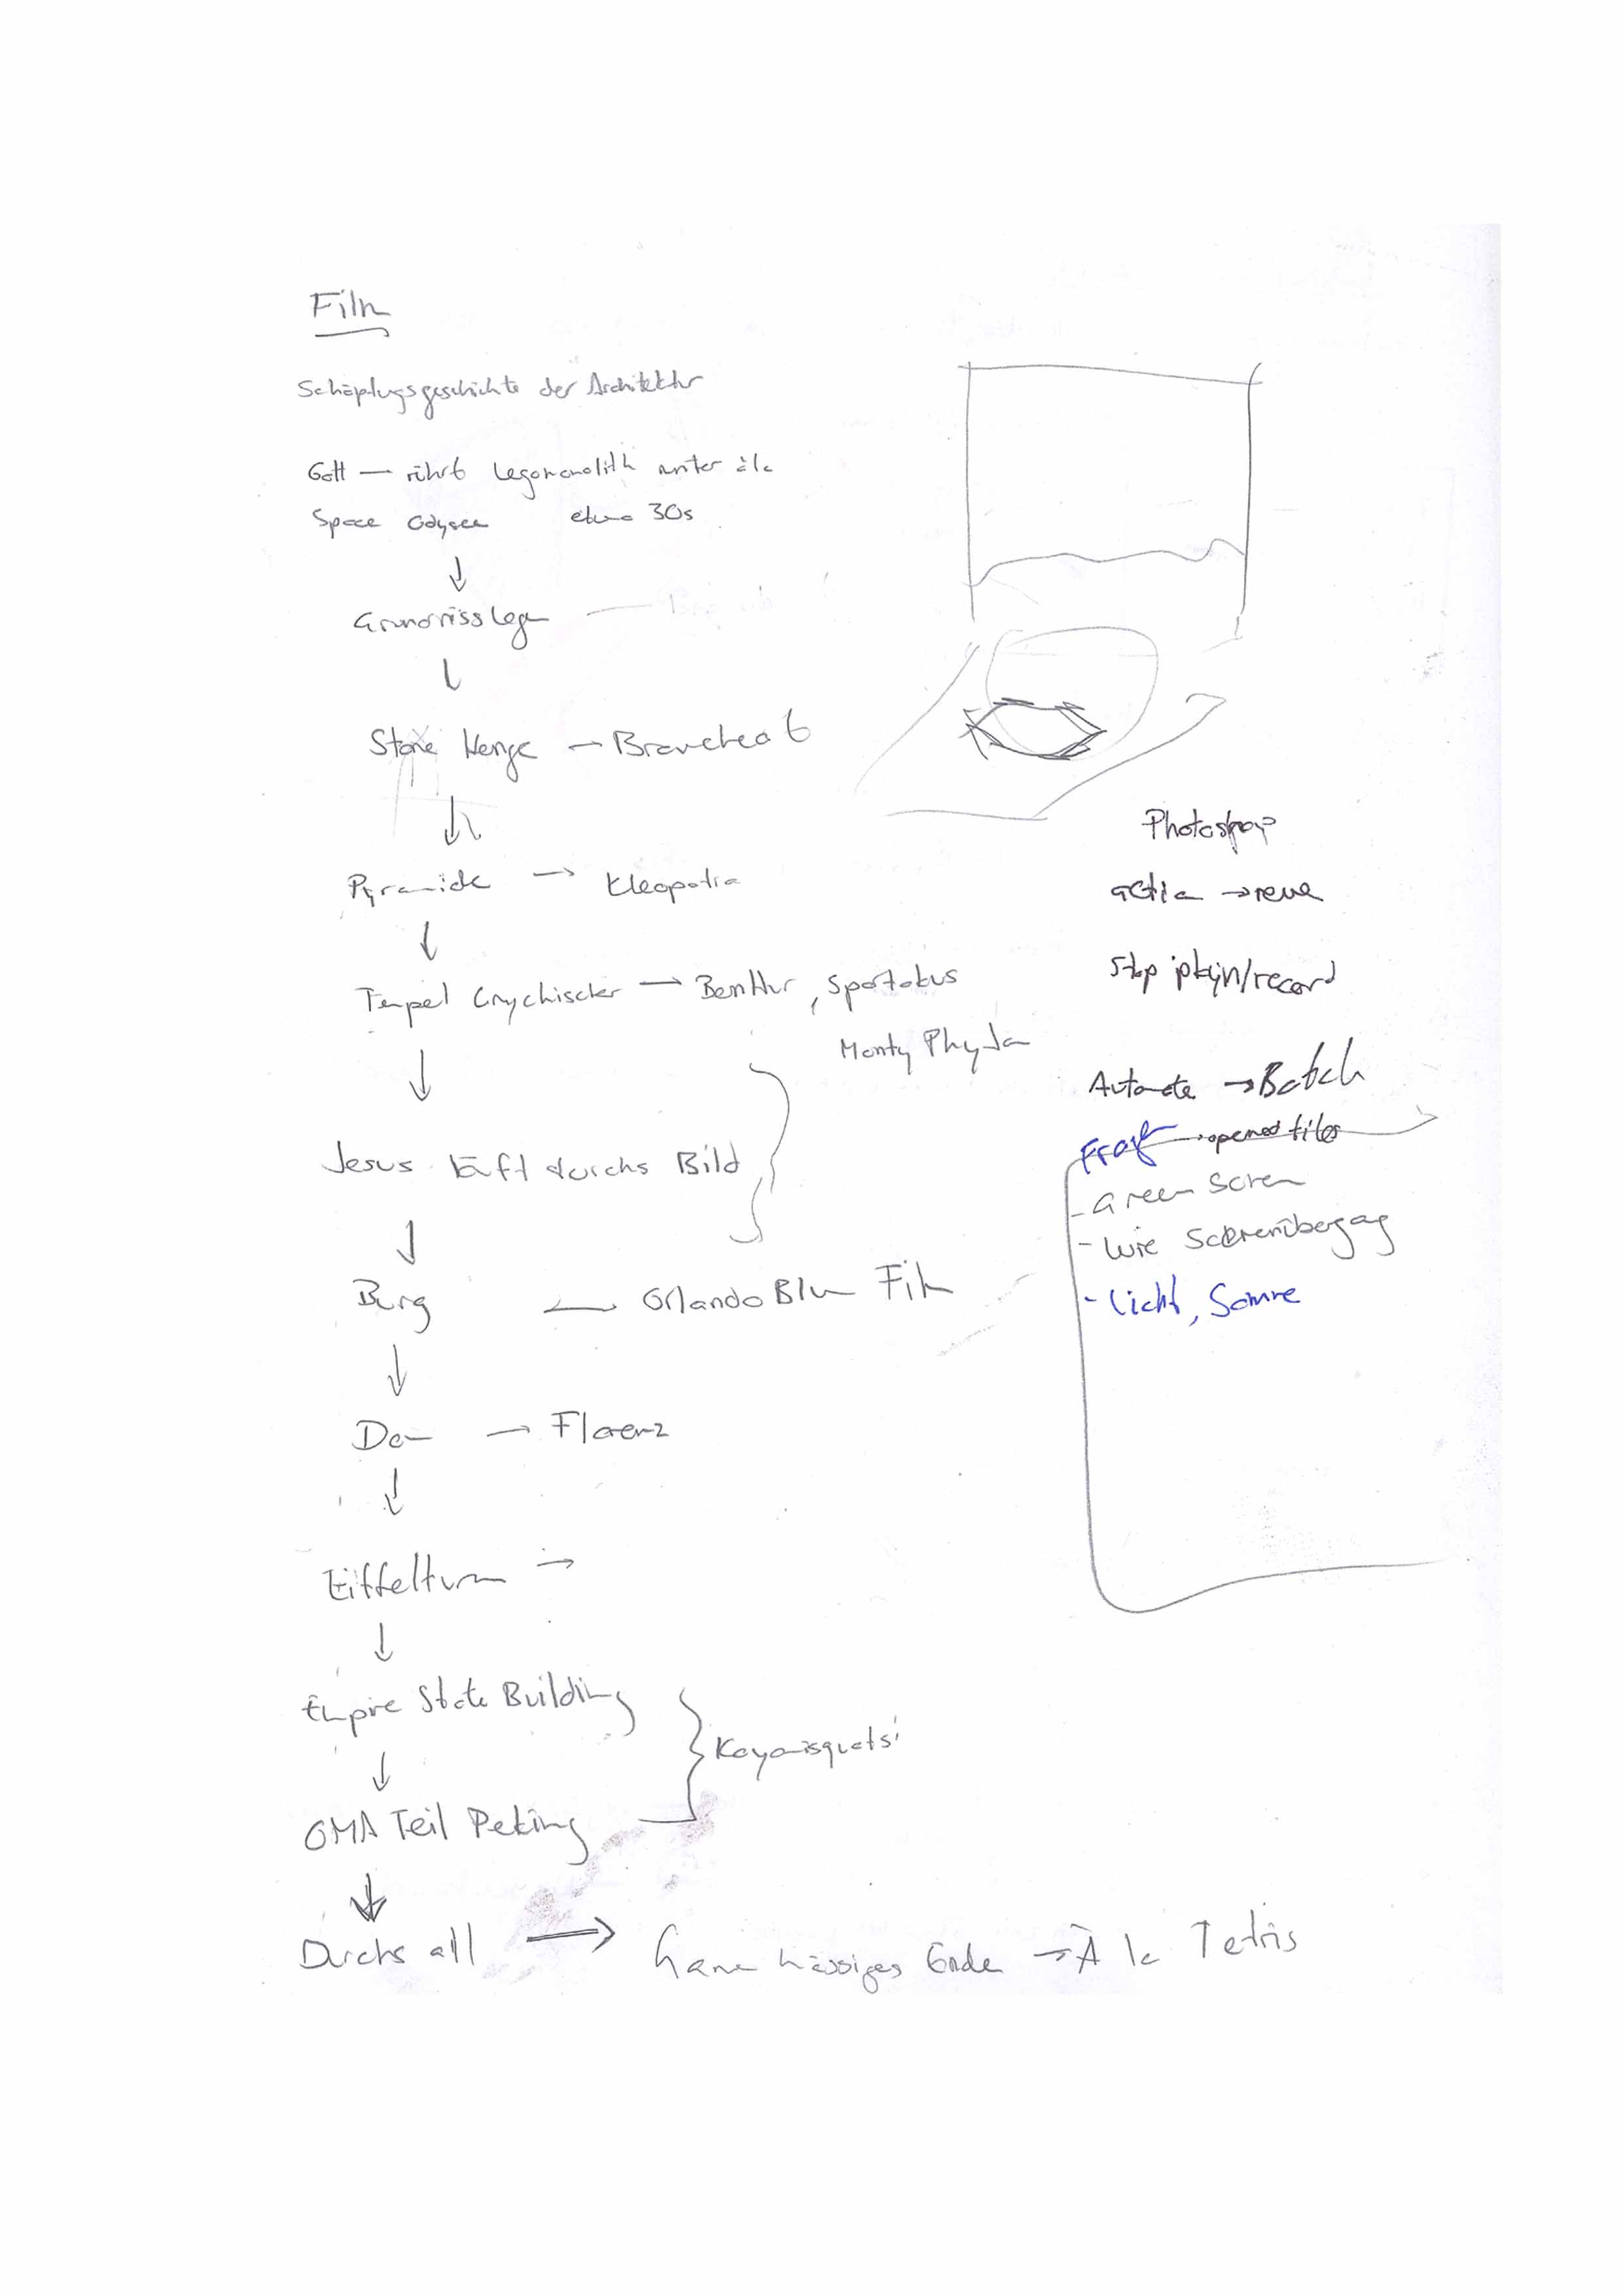 Film
Schöpfungsgeschichte der Architektur
Gott — rührt Legomonolith unter à la
Space Odysee etwa 30s
↓
Grundriss legen
↓
Stone Henge — Braveheart
↓
Pyramide → Kleopatra
↓
Tempel Grychischer — BenHur, Spartakus
Monty Phyton
↓
Jesus läuft durchs Bild
↓
Burg ← Orlando Blum Film
↓
Dom → Florenz
↓
Eiffelturm →
↓
Empire State Building
Koyanisquatsi
↓
OMA Teil Peking
↓
Durchs all → hässiges Ende → À la Tetris
Photoshop
action →
Stop /record
Automate → Batch
→ opened files
- Green Screen
- Wie Scenenübergang
- Licht, Sonne